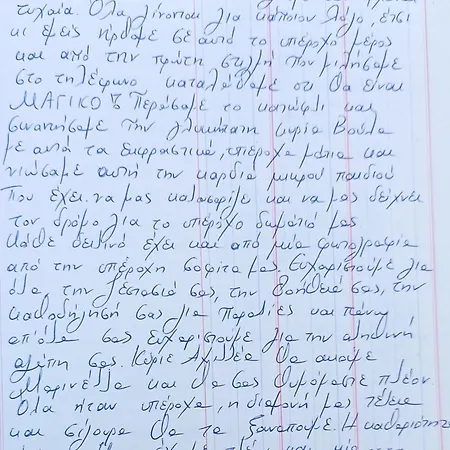 τυχαία. Όλα γίνονται για κάποιον λόγο, έτσι
κι εμείς ήρθαμε σε αυτό το υπέροχο μέρος
και από την πρώτη στιγμή που μιλήσαμε
στο τηλέφωνο καταλάβαμε ότι θα είναι
ΜΑΓΙΚΟ Περάσαμε το κατώφλι και
συναντήσαμε την γλυκύτατη κυρία Βούλα
με αυτά τα εκφραστικά, υπέροχα μάτια και
νιώσαμε αυτή την καρδιά μικρού παιδιού
που έχει. να μας καλωσορίζει και να μας δείχνει
τον δρόμο για το υπέροχο δωμάτιό μας
κάθε δειλινό έχει και από μία φωτογραφία
από την υπέροχη σοφίτα μας. Ευχαριστούμε για
όλα την ζεστασιά σας, την βοήθειά σας, την
καθοδήγησή σας για παραλίες και πάνω
απ'όλα σας ευχαριστούμε για την αληθινή
αγάπη σας. Κύριε Αχιλλέα θα ακούμε
Μαρινέλλα και θα σας θυμόμαστε πλέον
Όλα ήταν υπέροχα, η διαμονή μας τέλεια
και σίγουρα θα τα ξαναπούμε. Η καθαριότητα